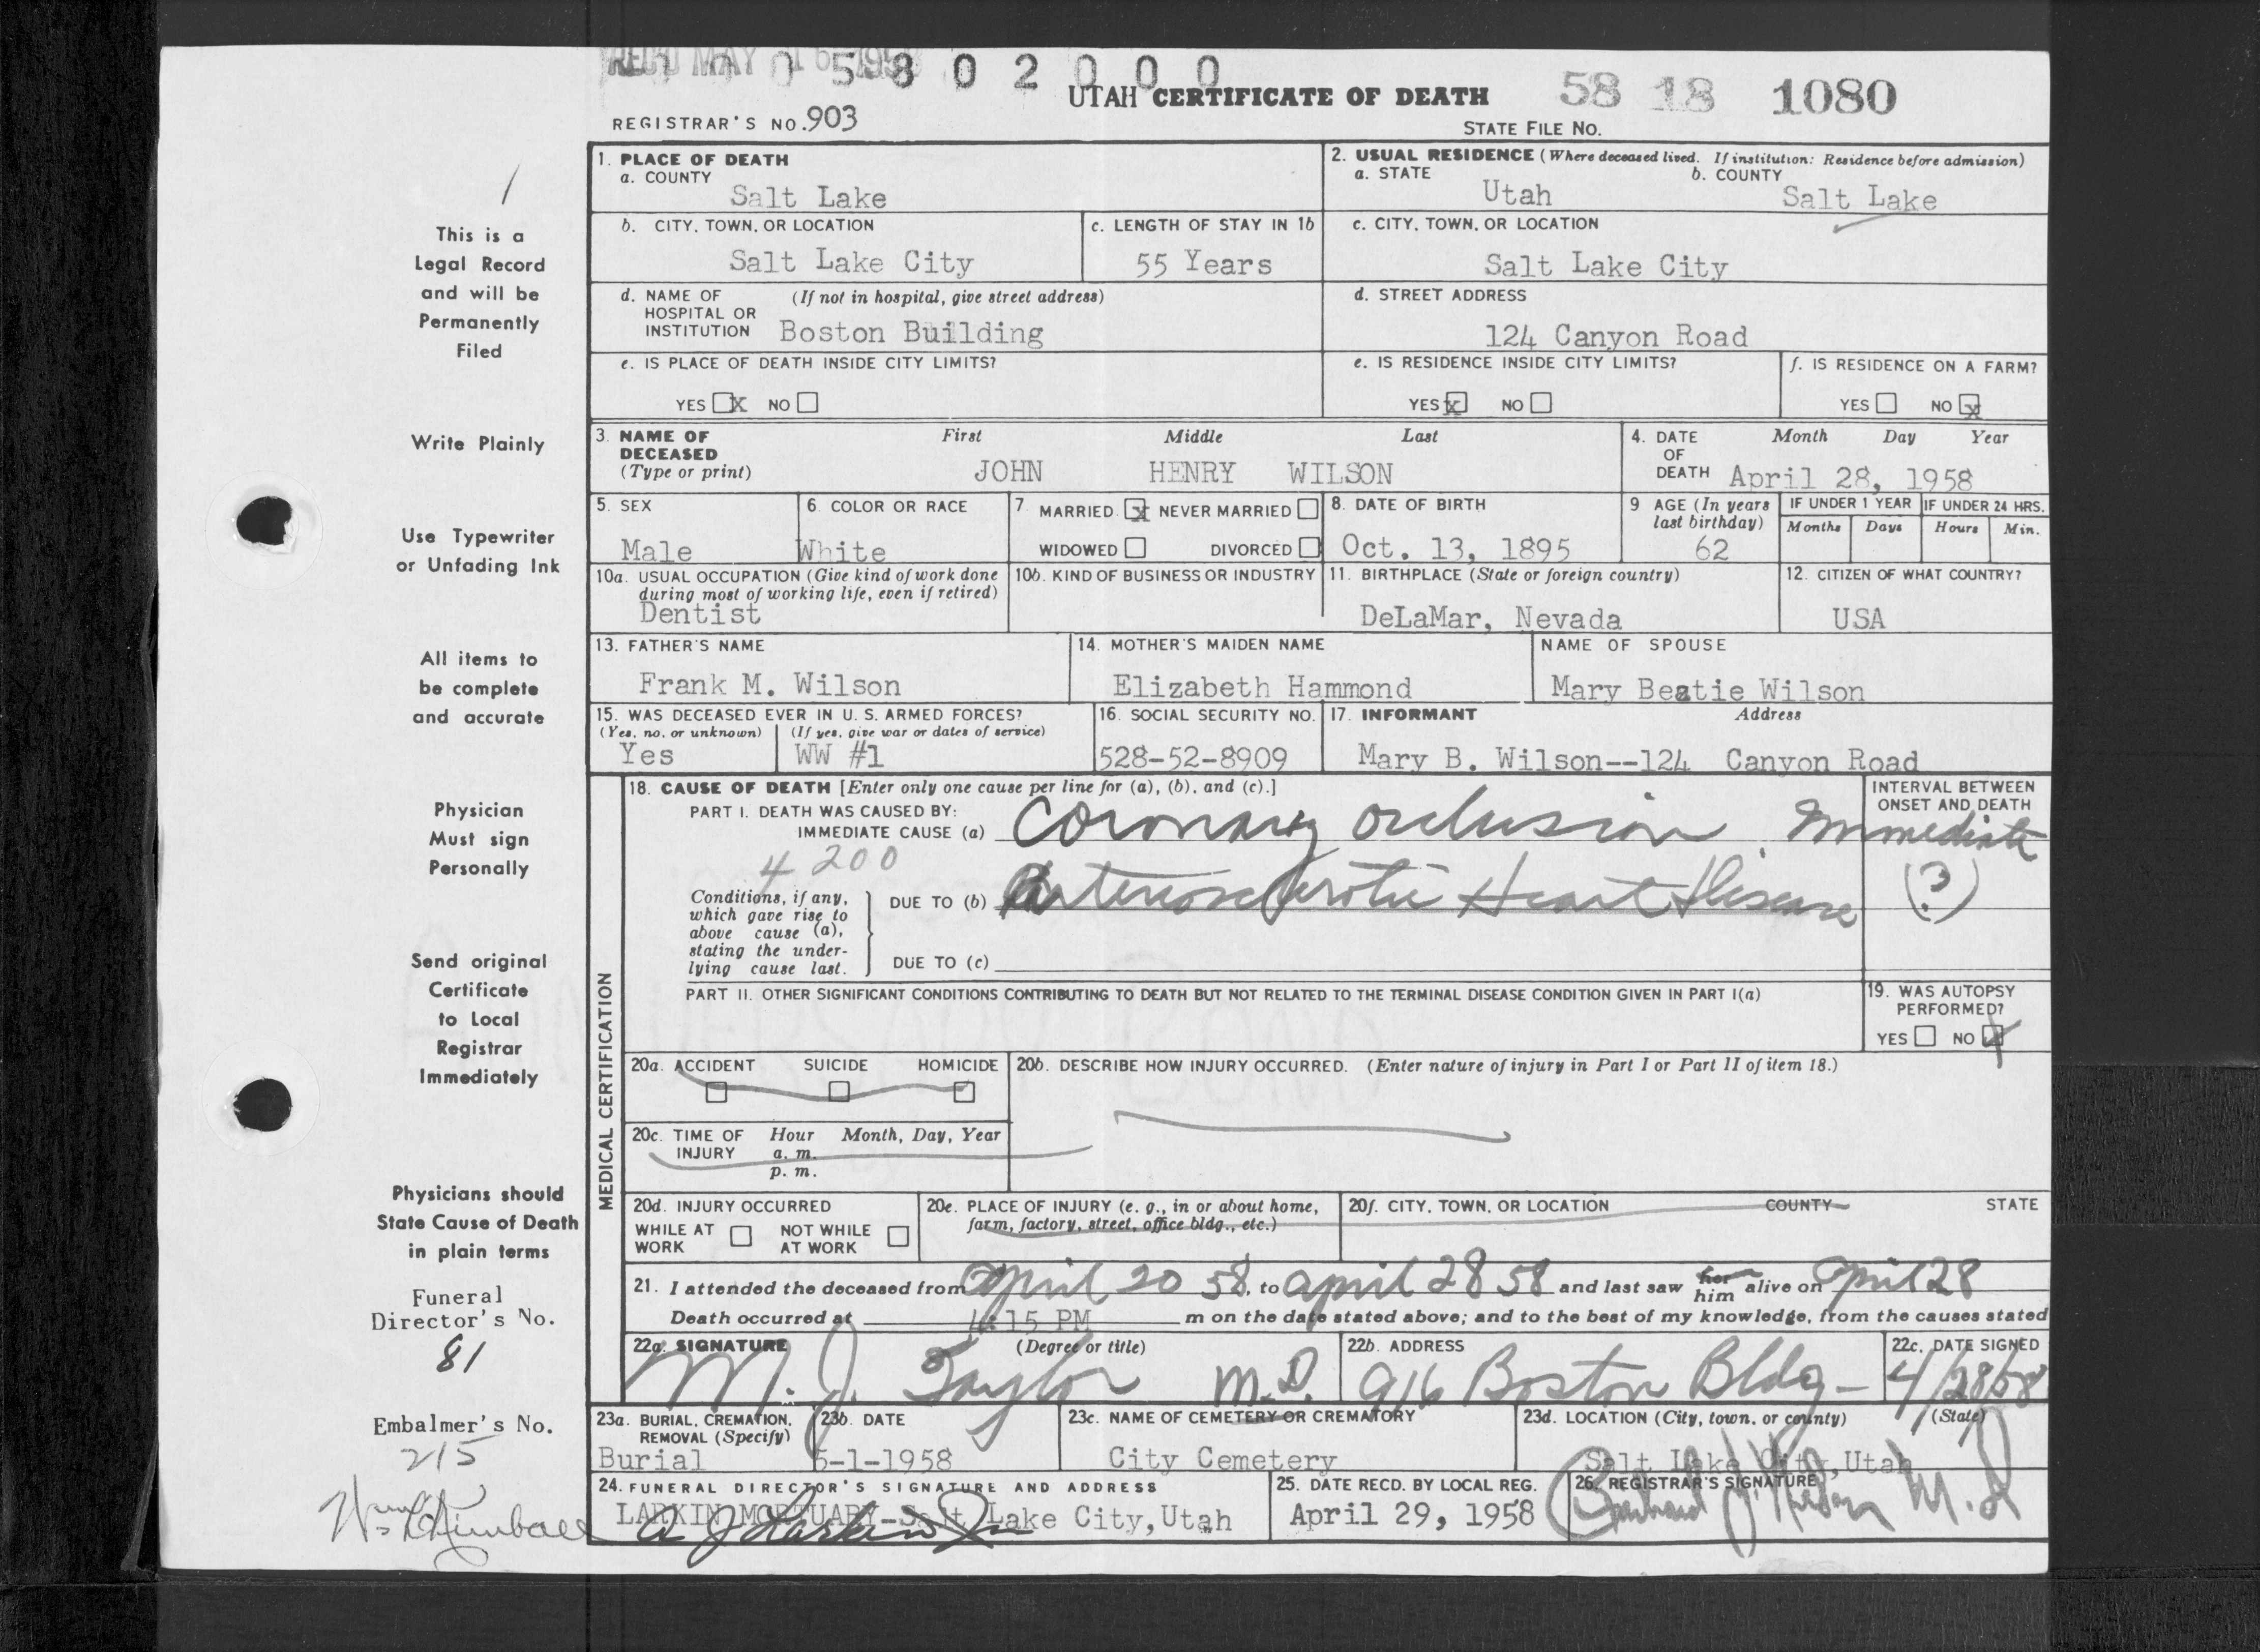 REC'D MAY 16 1958
0 5 8 0 2 0 0 0
UTAH CERTIFICATE OF DEATH 58 18 1080
REGISTRAR'S NO. 903
STATE FILE NO.
1. PLACE OF DEATH
a. COUNTY
Salt Lake
2. USUAL RESIDENCE (Where deceased lived. If institution: Residence before admission)
a. STATE
Utah
b. COUNTY
Salt Lake
b. CITY, TOWN, OR LOCATION
Salt Lake City
c. LENGTH OF STAY IN 1b
55 Years
c. CITY, TOWN, OR LOCATION
Salt Lake City
d. NAME OF HOSPITAL OR INSTITUTION (If not in hospital, give street address)
Boston Building
d. STREET ADDRESS
124 Canyon Road
e. IS PLACE OF DEATH INSIDE CITY LIMITS?
YES X NO
e. IS RESIDENCE INSIDE CITY LIMITS?
YES X NO
f. IS RESIDENCE ON A FARM?
YES NO X
3. NAME OF DECEASED (Type or print)
First Middle Last
JOHN HENRY WILSON
4. DATE OF DEATH Month Day Year
April 28, 1958
5. SEX
Male
6. COLOR OR RACE
White
7. MARRIED X NEVER MARRIED
WIDOWED DIVORCED
8. DATE OF BIRTH
Oct. 13, 1895
9 AGE (In years last birthday)
62
IF UNDER 1 YEAR
Months Days
IF UNDER 24 HRS.
Hours Min.
10a. USUAL OCCUPATION (Give kind of work done during most of working life, even if retired)
Dentist
10b. KIND OF BUSINESS OR INDUSTRY
11. BIRTHPLACE (State or foreign country)
DeLaMar, Nevada
12. CITIZEN OF WHAT COUNTRY?
USA
13. FATHER'S NAME
Frank M. Wilson
14. MOTHER'S MAIDEN NAME
Elizabeth Hammond
NAME OF SPOUSE
Mary Beatie Wilson
15. WAS DECEASED EVER IN U. S. ARMED FORCES?
(Yes, no, or unknown) (If yes, give war or dates of service)
Yes WW #1
16. SOCIAL SECURITY NO.
528-52-8909
17. INFORMANT Address
Mary B. Wilson--124 Canyon Road
MEDICAL CERTIFICATION
18. CAUSE OF DEATH [Enter only one cause per line for (a), (b), and (c).]
PART I. DEATH WAS CAUSED BY:
IMMEDIATE CAUSE (a) Coronary occlusion
INTERVAL BETWEEN ONSET AND DEATH
Immediate
4200
Conditions, if any, which gave rise to above cause (a), stating the underlying cause last.
DUE TO (b) Arteriosclerotic Heart Disease
(?)
DUE TO (c)
PART II. OTHER SIGNIFICANT CONDITIONS CONTRIBUTING TO DEATH BUT NOT RELATED TO THE TERMINAL DISEASE CONDITION GIVEN IN PART I(a)
19. WAS AUTOPSY PERFORMED?
YES NO X
20a. ACCIDENT SUICIDE HOMICIDE
20b. DESCRIBE HOW INJURY OCCURRED. (Enter nature of injury in Part I or Part II of item 18.)
20c. TIME OF INJURY Hour Month, Day, Year
a. m.
p. m.
20d. INJURY OCCURRED
WHILE AT WORK NOT WHILE AT WORK
20e. PLACE OF INJURY (e. g., in or about home, farm, factory, street, office bldg., etc.)
20f. CITY, TOWN, OR LOCATION COUNTY STATE
21. I attended the deceased from April 20 58, to April 28 58 and last saw her him alive on April 28
Death occurred at 4:15 PM m on the date stated above; and to the best of my knowledge, from the causes stated
22a. SIGNATURE (Degree or title)
M. J. Taylor M.D.
22b. ADDRESS
916 Boston Bldg-
22c. DATE SIGNED
4/28/58
23a. BURIAL, CREMATION, REMOVAL (Specify)
Burial
23b. DATE
5-1-1958
23c. NAME OF CEMETERY OR CREMATORY
City Cemetery
23d. LOCATION (City, town, or county) (State)
Salt Lake City, Utah
24. FUNERAL DIRECTOR'S SIGNATURE AND ADDRESS
LARKIN MORTUARY-Salt Lake City, Utah
25. DATE RECD. BY LOCAL REG.
April 29, 1958
26. REGISTRAR'S SIGNATURE
M.D.
This is a
Legal Record
and will be
Permanently
Filed
Write Plainly
Use Typewriter
or Unfading Ink
All items to
be complete
and accurate
Physician
Must sign
Personally
Send original
Certificate
to Local
Registrar
Immediately
Physicians should
State Cause of Death
in plain terms
Funeral
Director's No.
81
Embalmer's No.
215